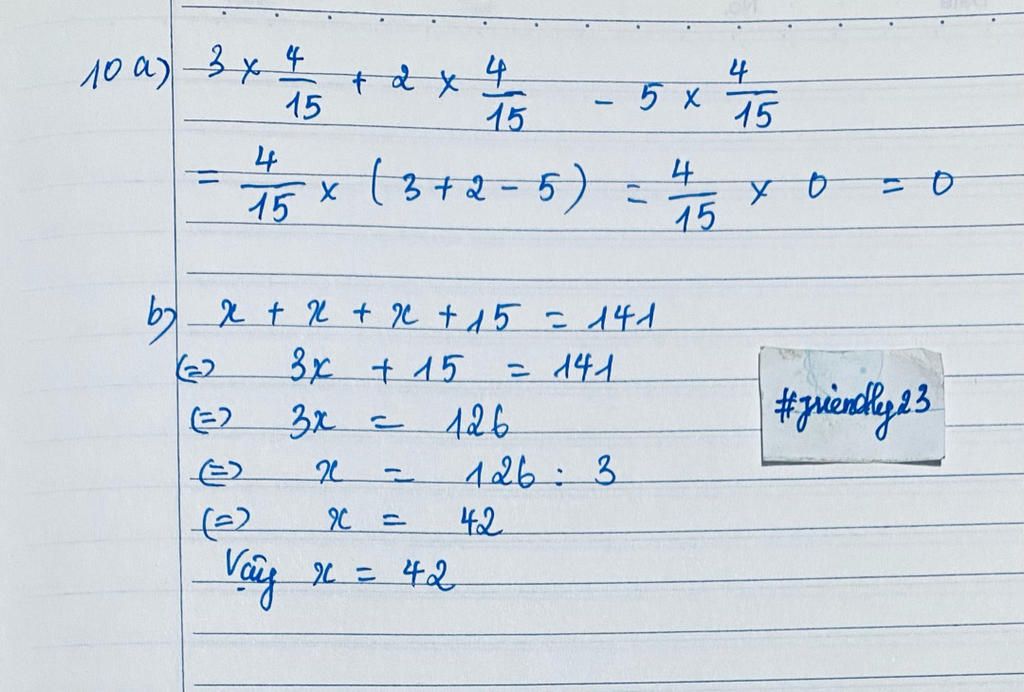 10 a) 3 × 4/15 + 2 × 4/15 - 5 × 4/15
= 4/15 × (3 + 2 - 5) = 4/15 × 0 = 0
b) x + x + x + 15 = 141
(=) 3x + 15 = 141
(=) 3x = 126
(=) x = 126 : 3
(=) x = 42
Vậy x = 42
#friendly23